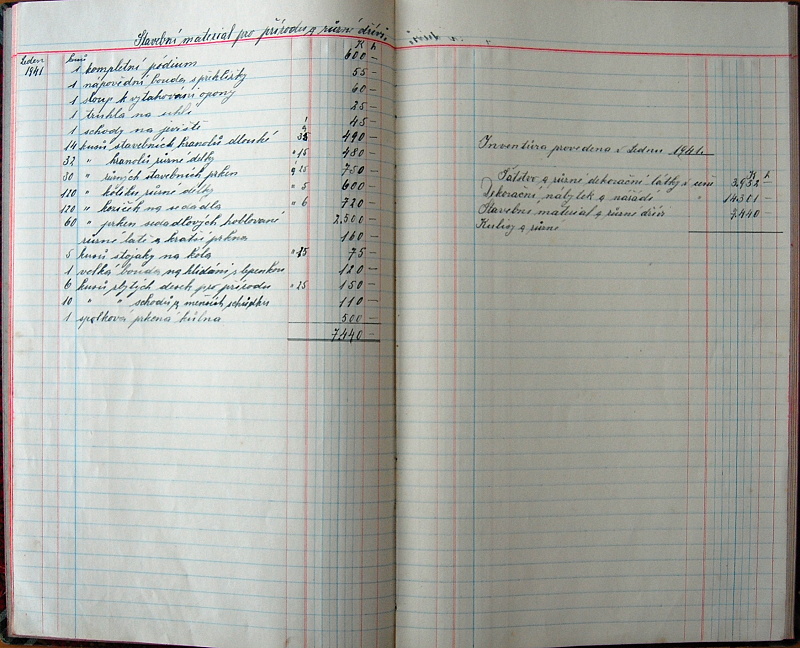 Stavební material pro přírodu a různé dříví
K h
Leden 1941 kusů
1 kompletní pódium 600 —
1 nápovědní bouda s přiklísky 55 —
1 sloup k vytahování opony 60 —
1 truhla na uhlí 25 —
1 schody na jeviště 45 —
14 kusů stavebních hranolů dlouhé á 35 490 —
32 " hranolů různé délky " 15 480 —
30 " různých stavebních prken á 25 750 —
120 " kolíků různé délky " 5 600 —
120 " koziček na sedadla " 6 720 —
60 " prken sedadlových hoblované 2.500 —
různé latě a kratší prkna 160 —
5 kusů stojaky na kola " 15 75 —
1 velká bouda na hlídání s lepenkou 120 —
6 kusů zbylých desek pro přírodu " 25 150 —
10 " " schodů a menších schůdků 110 —
1 spolková prkená kůlna 500 —
7.440 —
Inventúra provedena v Lednu 1941.
K h
Šatstvo a různé dekorační látky v ceně 3.952 —
Dekorační nábytek a nářadí " 14.301 —
Stavební material a různé dříví 7.440
Kulisy a různé